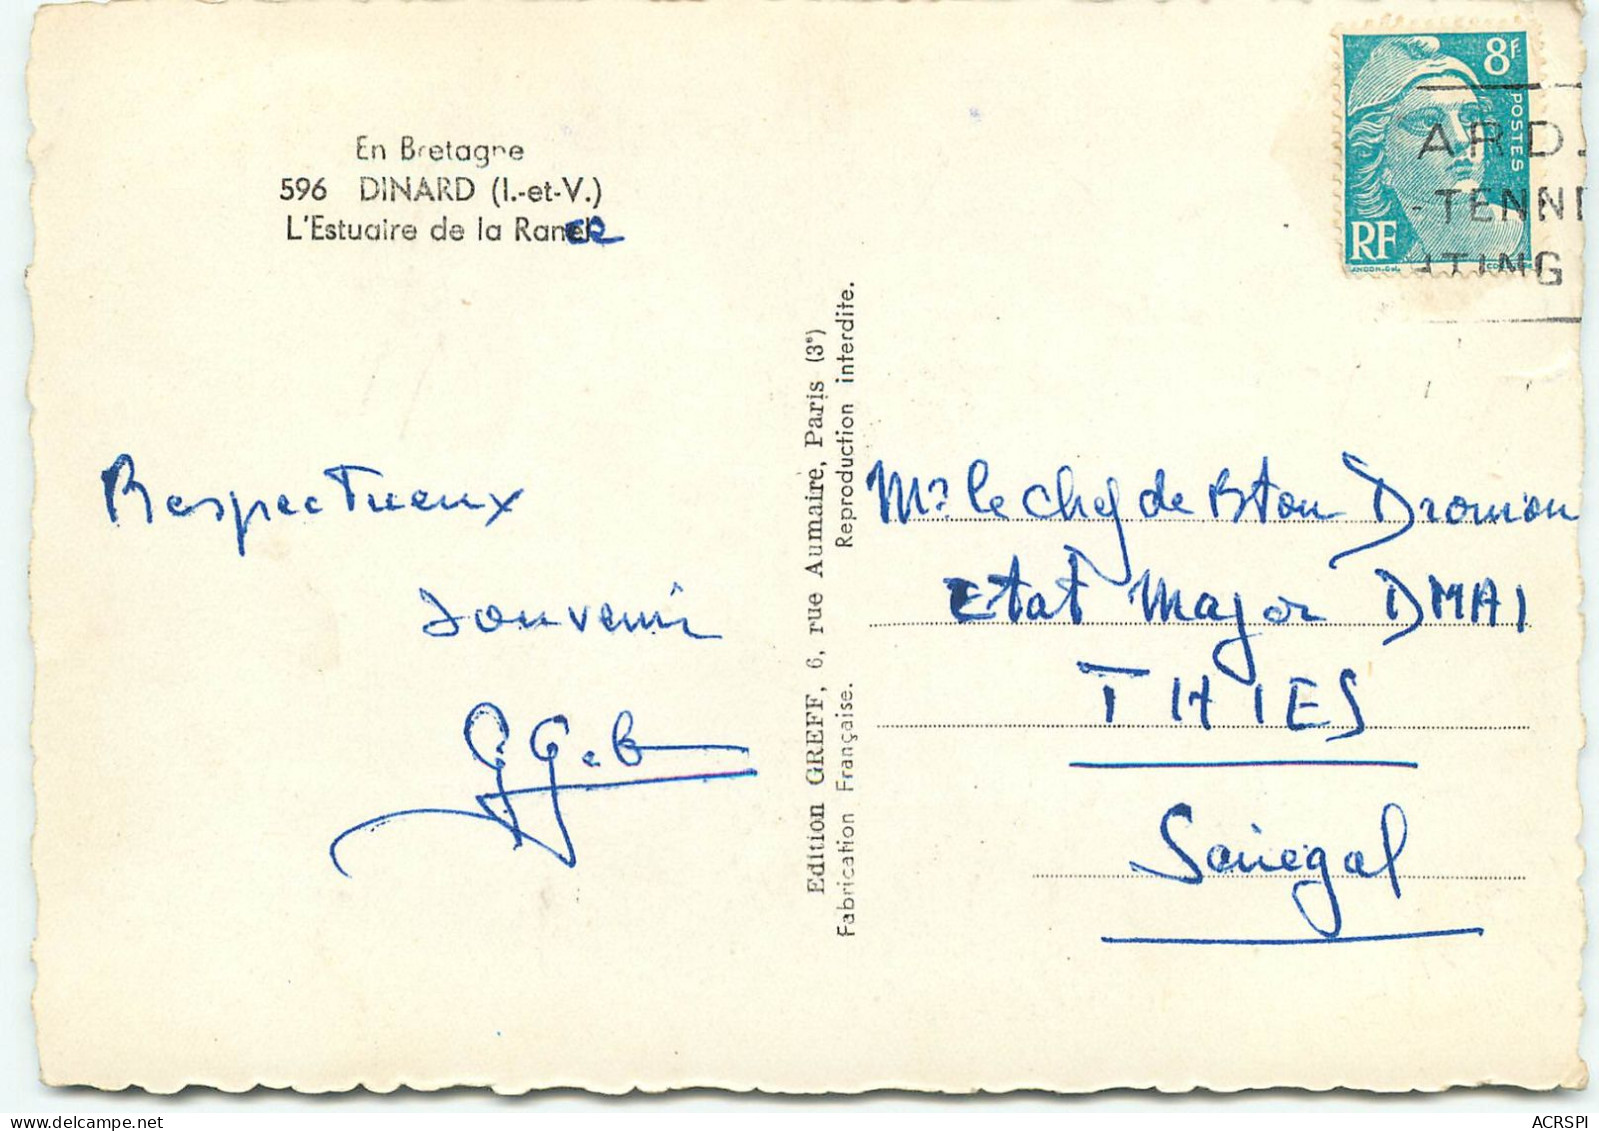 En Bretagne
596 DINARD (I.-et-V.)
L'Estuaire de la Rance
Respectueux
souvenir
Edition GREFF, 6, rue Aumaire, Paris (3e)
Fabrication Française. Reproduction interdite.
8F
POSTES
RF
ARD
-TENNI
ITING
Mr le Chef de Bton Dromion
Etat Major DMA1
THIES
Sénégal
ACRSPI